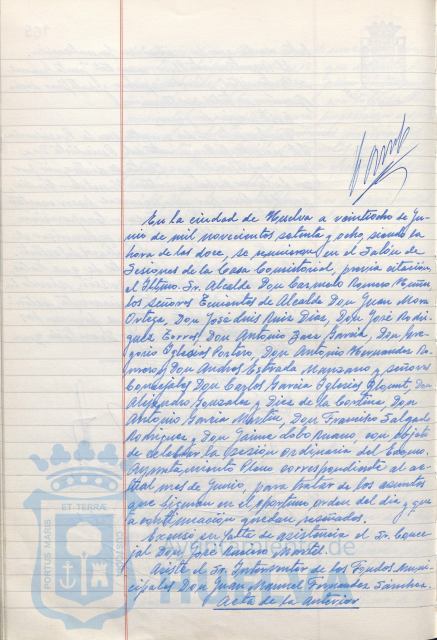 En la ciudad de Huelva a veintiocho de Ju-
nio de mil novecientos setenta y ocho, siendo la
hora de las doce, se reunieron en el Salón de
Sesiones de la Casa Consistorial, previa citación,
el Iltmo. Sr. Alcalde Don Carmelo Romero
los señores Tenientes de Alcalde Don Juan Mora
Ortega, Don José Luis Ruiz Díaz, Don José Rodrí-
guez Don Antonio García, Don Gre-
gorio Iglesias Don Antonio Hernández
Don Andrés Estrada Manzano y señores
Concejales Don Carlos García Iglesias Don
Alejandro González y Díez de la Cortina, Don
Antonio García Martín, Don Francisco Salgado
Rodríguez y Don Jaime Lobo con objeto
de celebrar la sesión ordinaria del Excmo.
Ayuntamiento Pleno correspondiente al ac-
tual mes de Junio, para tratar de los asuntos
que figuran en el oportuno orden del día y que
a continuación quedan reseñados.
Excusó su falta de asistencia el Sr. Conce-
jal Don José
Asiste el Sr. Interventor de los Fondos Muni-
cipales Don Juan Manuel Fernández Sánchez.
Acta de la anterior
PORTUS MARIS
ET·TERRÆ